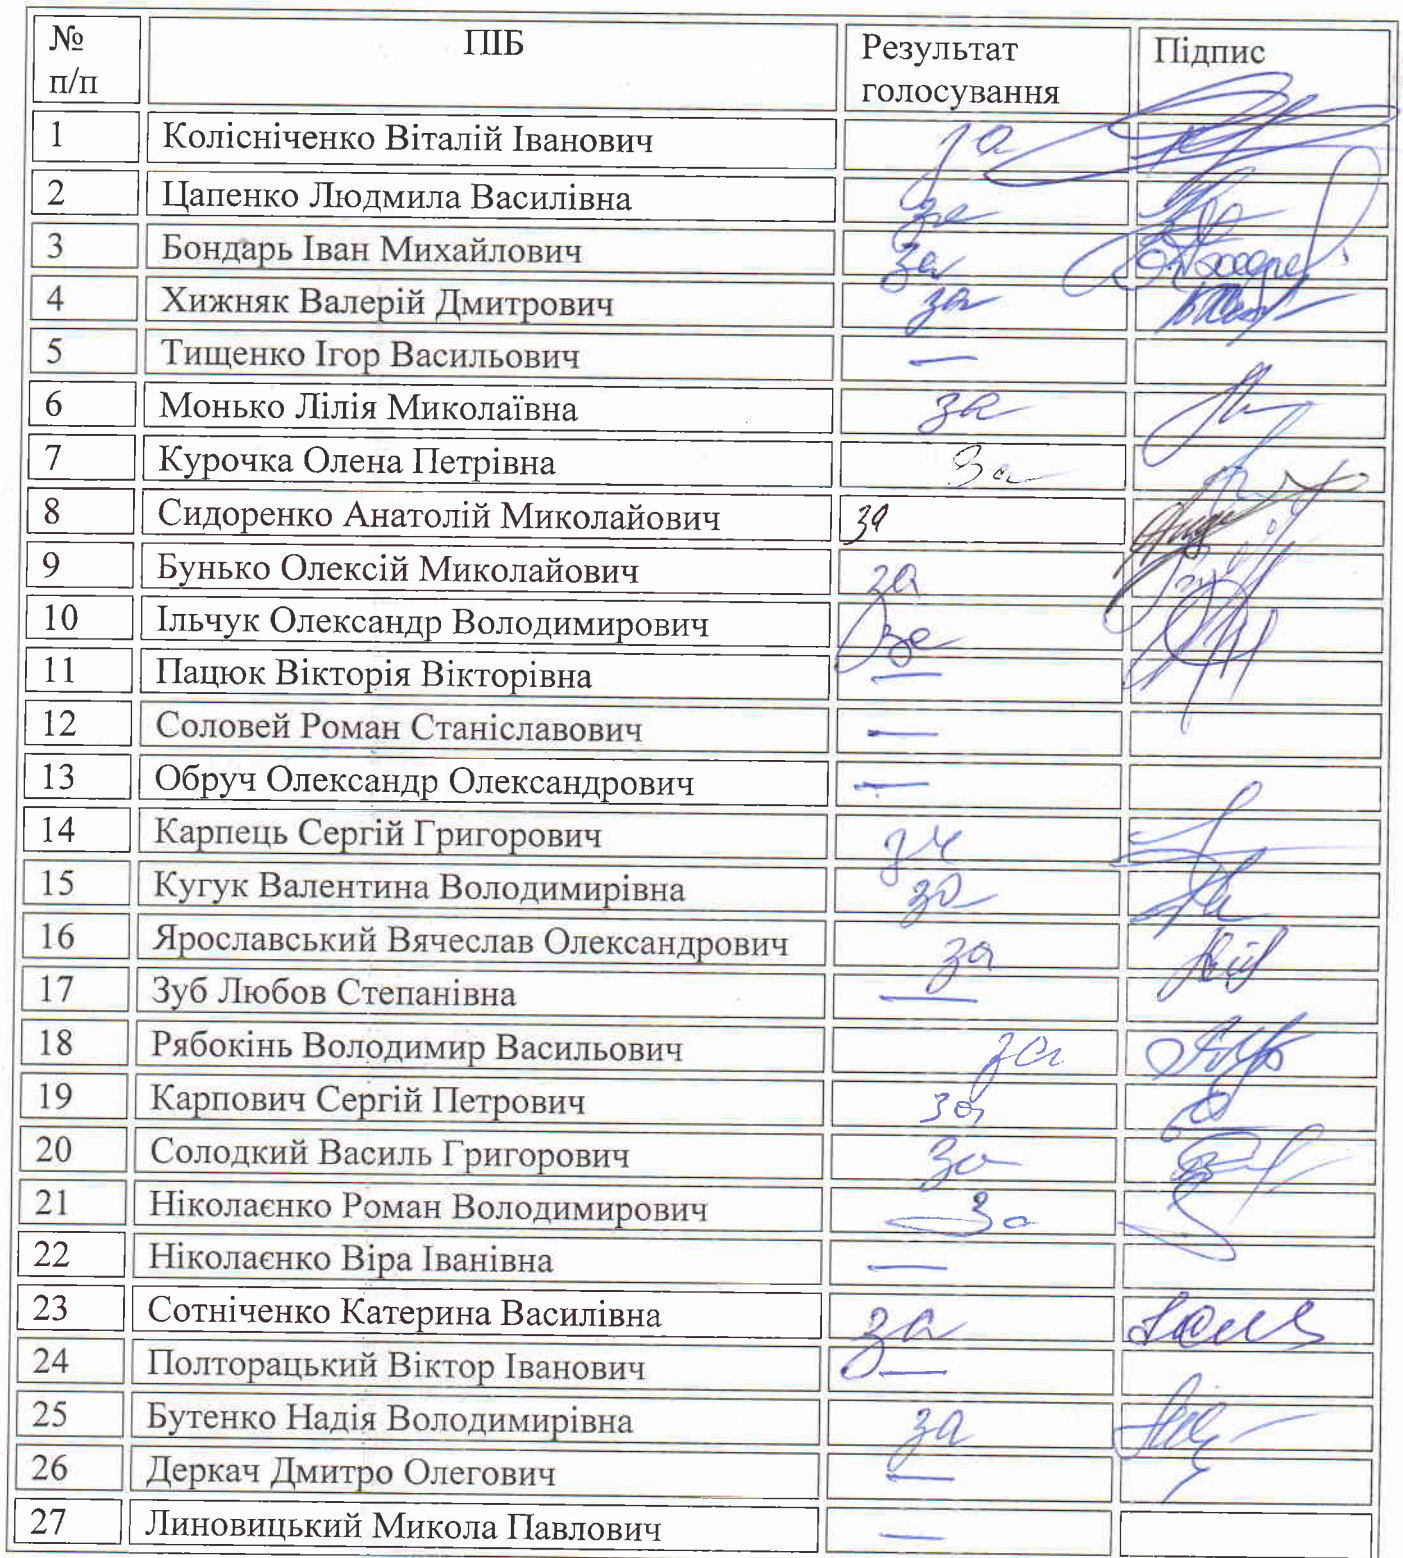 № п/п ПІБ Результат голосування Підпис
1 Колісніченко Віталій Іванович за
2 Цапенко Людмила Василівна за
3 Бондарь Іван Михайлович за
4 Хижняк Валерій Дмитрович за
5 Тищенко Ігор Васильович —
6 Монько Лілія Миколаївна за
7 Курочка Олена Петрівна За
8 Сидоренко Анатолій Миколайович за
9 Бунько Олексій Миколайович за
10 Ільчук Олександр Володимирович За
11 Пацюк Вікторія Вікторівна —
12 Соловей Роман Станіславович —
13 Обруч Олександр Олександрович —
14 Карпець Сергій Григорович за
15 Кугук Валентина Володимирівна за
16 Ярославський Вячеслав Олександрович за
17 Зуб Любов Степанівна —
18 Рябокінь Володимир Васильович за
19 Карпович Сергій Петрович за
20 Солодкий Василь Григорович За
21 Ніколаєнко Роман Володимирович За
22 Ніколаєнко Віра Іванівна —
23 Сотніченко Катерина Василівна за
24 Полторацький Віктор Іванович —
25 Бутенко Надія Володимирівна за
26 Деркач Дмитро Олегович —
27 Линовицький Микола Павлович —